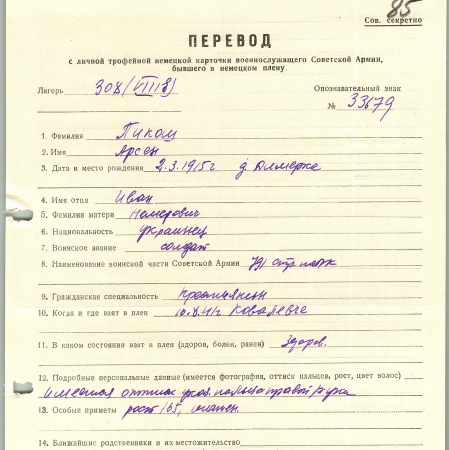 85
Сов. секретно
ПЕРЕВОД
с личной трофейной немецкой карточки военнослужащего Советской Армии,
бывшего в немецком плену.
Лагерь 308/(VIII E) Опознавательный знак
№ 33679
1. Фамилия Пиком
2. Имя Арсен
3. Дата и место рождения 2.3.1915г д.
4. Имя отца Иван
5. Фамилия матери Немерович
6. Национальность украинец
7. Воинское звание солдат
8. Наименование воинской части Советской Армии 791 стр полк
9. Гражданская специальность крестьянин
10. Когда и где взят в плен 10.8.41г
11. В каком состоянии взят в плен (здоров, болен, ранен) здоров.
12. Подробные персональные данные (имеется фотография, оттиск пальцев, рост, цвет волос)
имеется оттиск указ. пальца правой руки
13. Особые приметы рост 165,
14. Ближайшие родственники и их местожительство